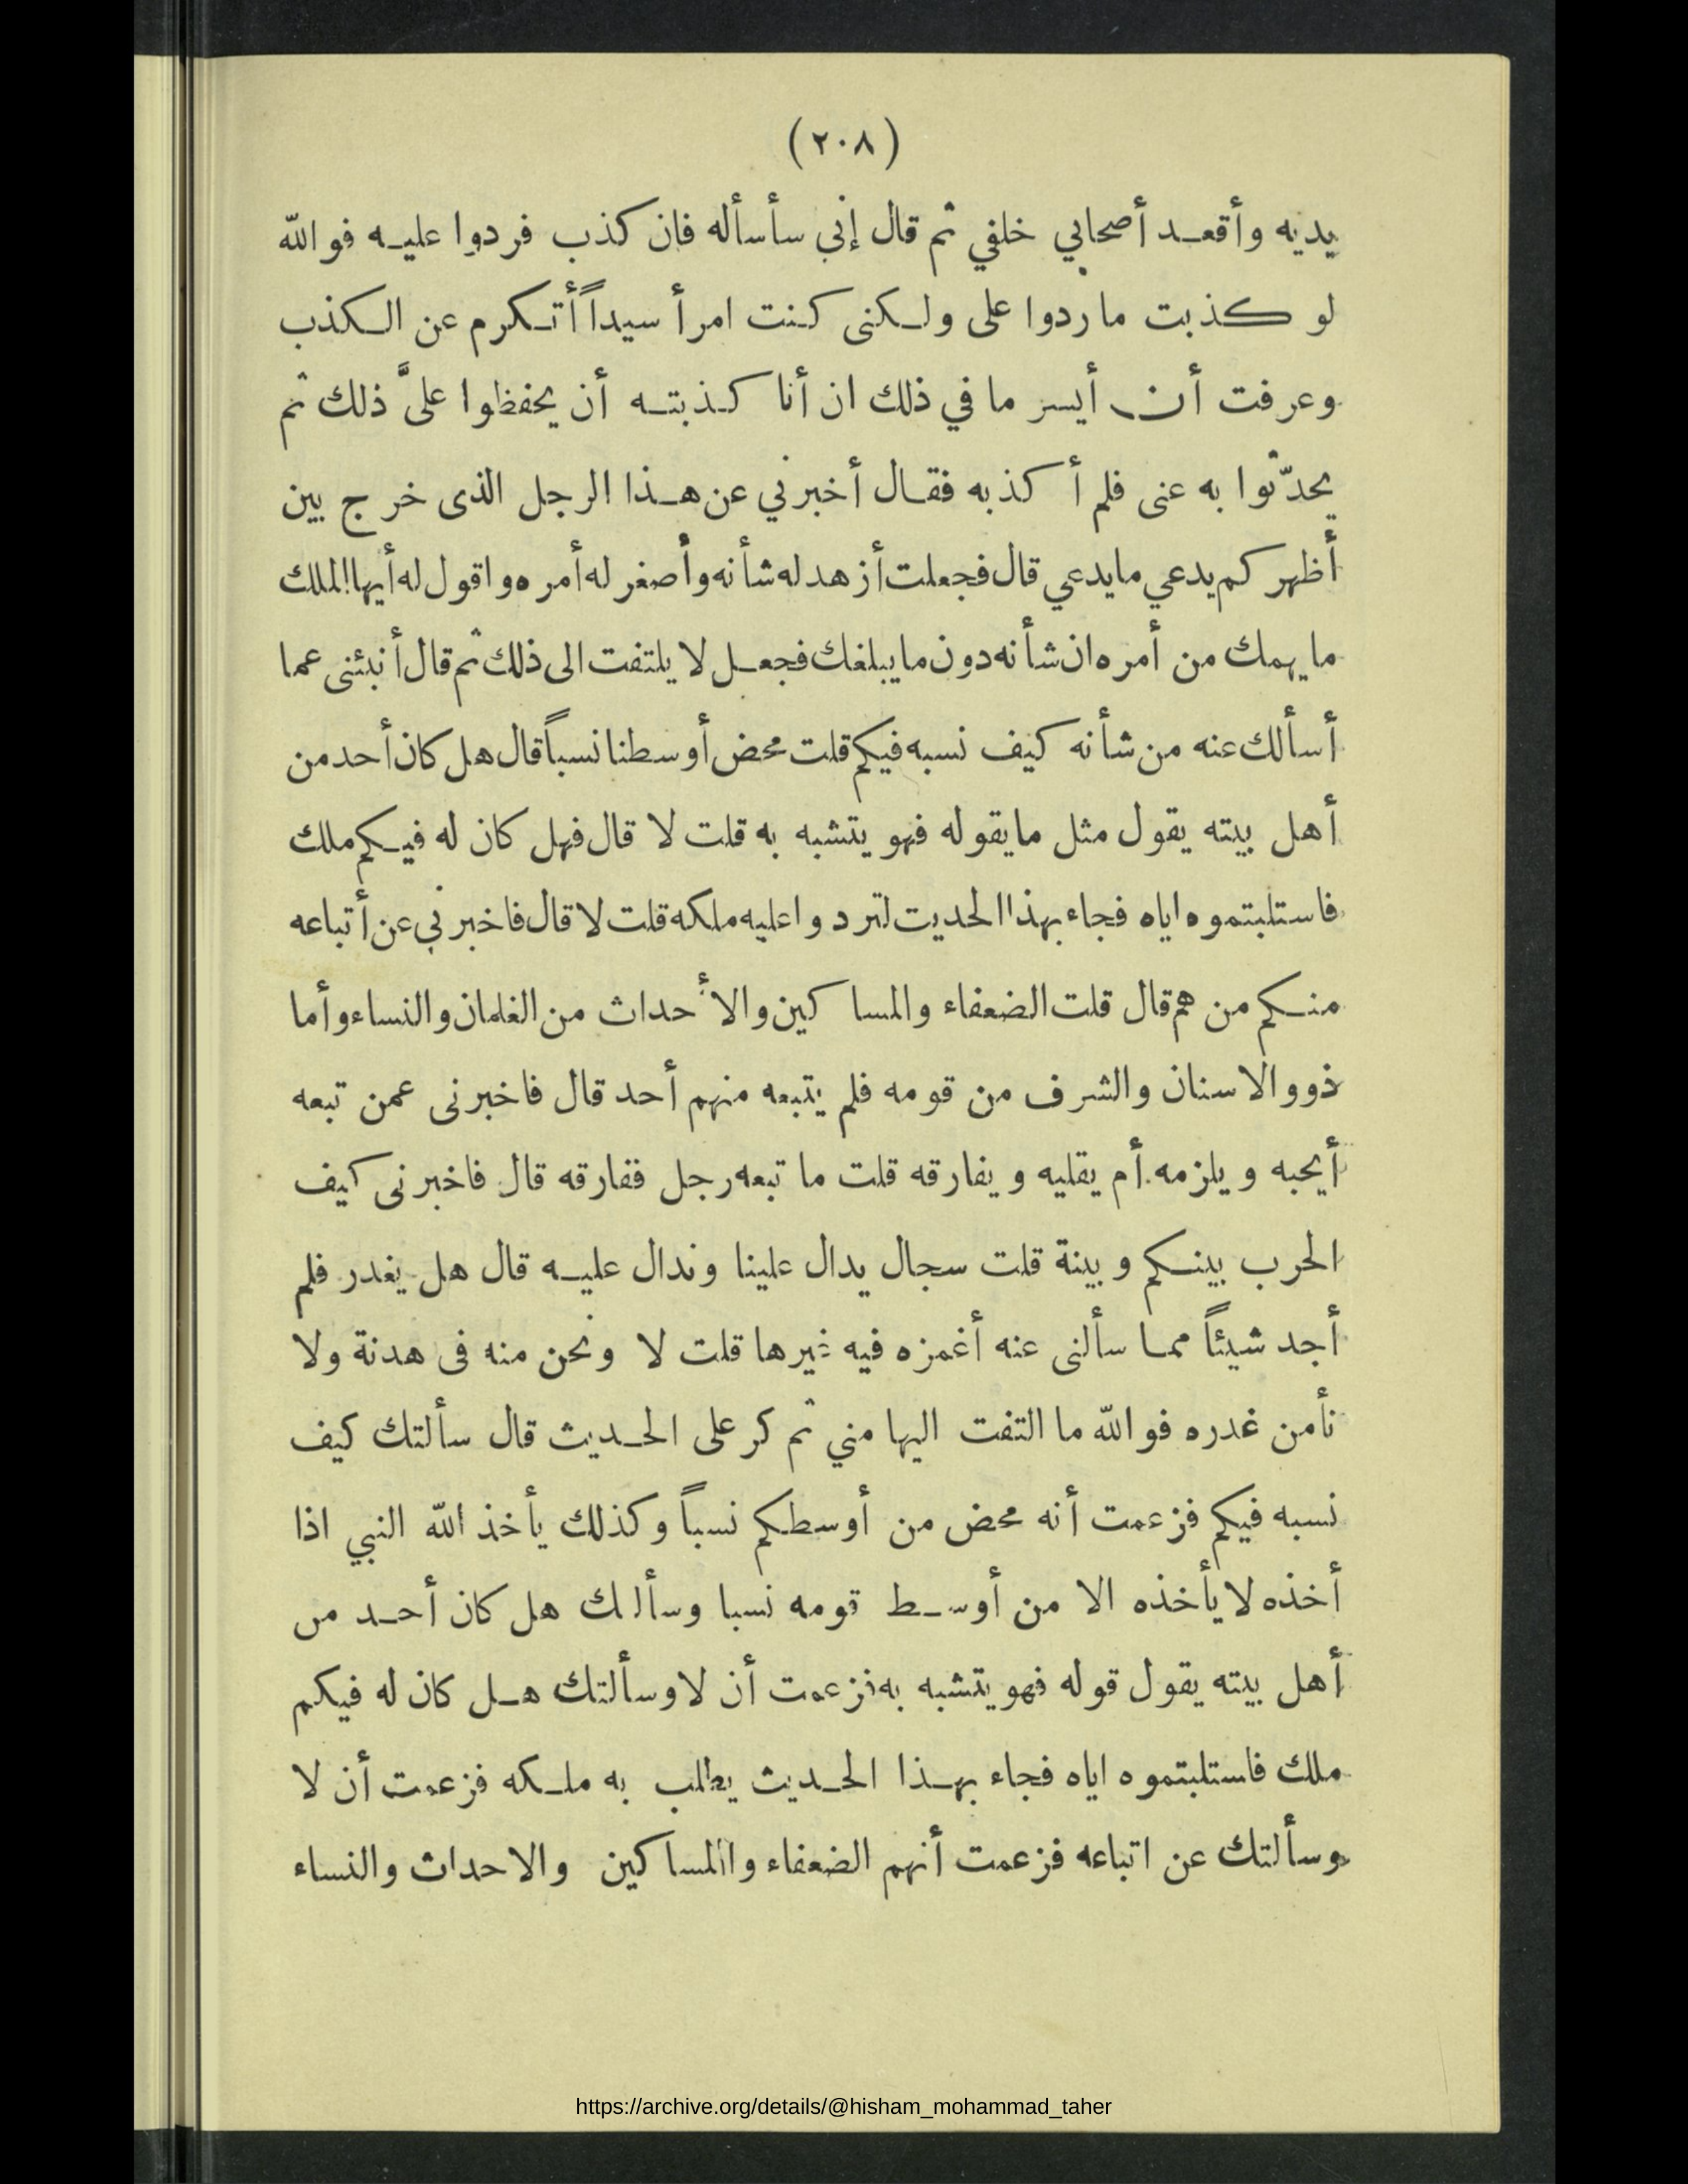 (٢٠٨)
يديه وأقعد أصحابي خلفي ثم قال إني سأسأله فان كذب فردوا عليه فوالله
لو كذبت ما ردوا على ولكنى كنت امرأ سيداً أتكرم عن الكذب
وعرفت أن أيسر ما في ذلك ان أنا كذبته أن يحفظوا علىَّ ذلك ثم
يحدّثوا به عنى فلم أكذبه فقال أخبرني عن هذا الرجل الذى خرج بين
أظهركم يدعي ما يدعي قال فجعلت أزهد له شأنه وأصغر له أمره واقول له أيها الملك
ما يهمك من أمره ان شأنه دون ما يبلغك فجعل لا يلتفت الى ذلك ثم قال أنبئنى عما
أسألك عنه من شأنه كيف نسبه فيكم قلت محض أوسطنا نسباً قال هل كان أحد من
أهل بيته يقول مثل ما يقوله فهو يتشبه به قلت لا قال فهل كان له فيكم ملك
فاستلبتموه اياه فجاء بهذا الحديث لتردوا عليه ملكه قلت لا قال فاخبرني عن أتباعه
منكم من هم قال قلت الضعفاء والمساكين والأحداث من الغلمان والنساء وأما
ذوو الاسنان والشرف من قومه فلم يتبعه منهم أحد قال فاخبرنى عمن تبعه
أيحبه ويلزمه أم يقليه ويفارقه قلت ما تبعه رجل ففارقه قال فاخبرنى كيف
الحرب بينكم وبينة قلت سجال يدال علينا وندال عليه قال هل يغدر فلم
أجد شيئاً مما سألنى عنه أغمزه فيه غيرها قلت لا ونحن منه فى هدنة ولا
نأمن غدره فوالله ما التفت اليها مني ثم كر على الحديث قال سألتك كيف
نسبه فيكم فزعمت أنه محض من أوسطكم نسباً وكذلك يأخذ الله النبي اذا
أخذه لا يأخذه الا من أوسط قومه نسبا وسألتك هل كان أحد من
أهل بيته يقول قوله فهو يتشبه به فزعمت أن لا وسألتك هل كان له فيكم
ملك فاستلبتموه اياه فجاء بهذا الحديث يطلب به ملكه فزعمت أن لا
وسألتك عن اتباعه فزعمت أنهم الضعفاء والمساكين والاحداث والنساء
https://archive.org/details/@hisham_mohammad_taher